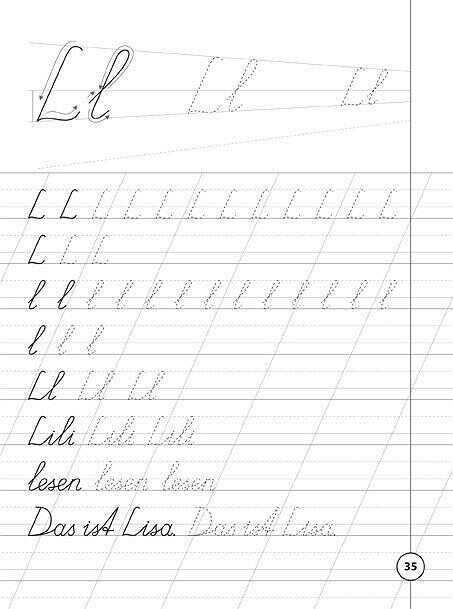 L l L l L l
L L L L L L L L L L L L
L L L
l l l l l l l l l l l l l
l l l
Ll Ll Ll
Lili Lili Lili
lesen lesen lesen
Das ist Lisa. Das ist Lisa.
35